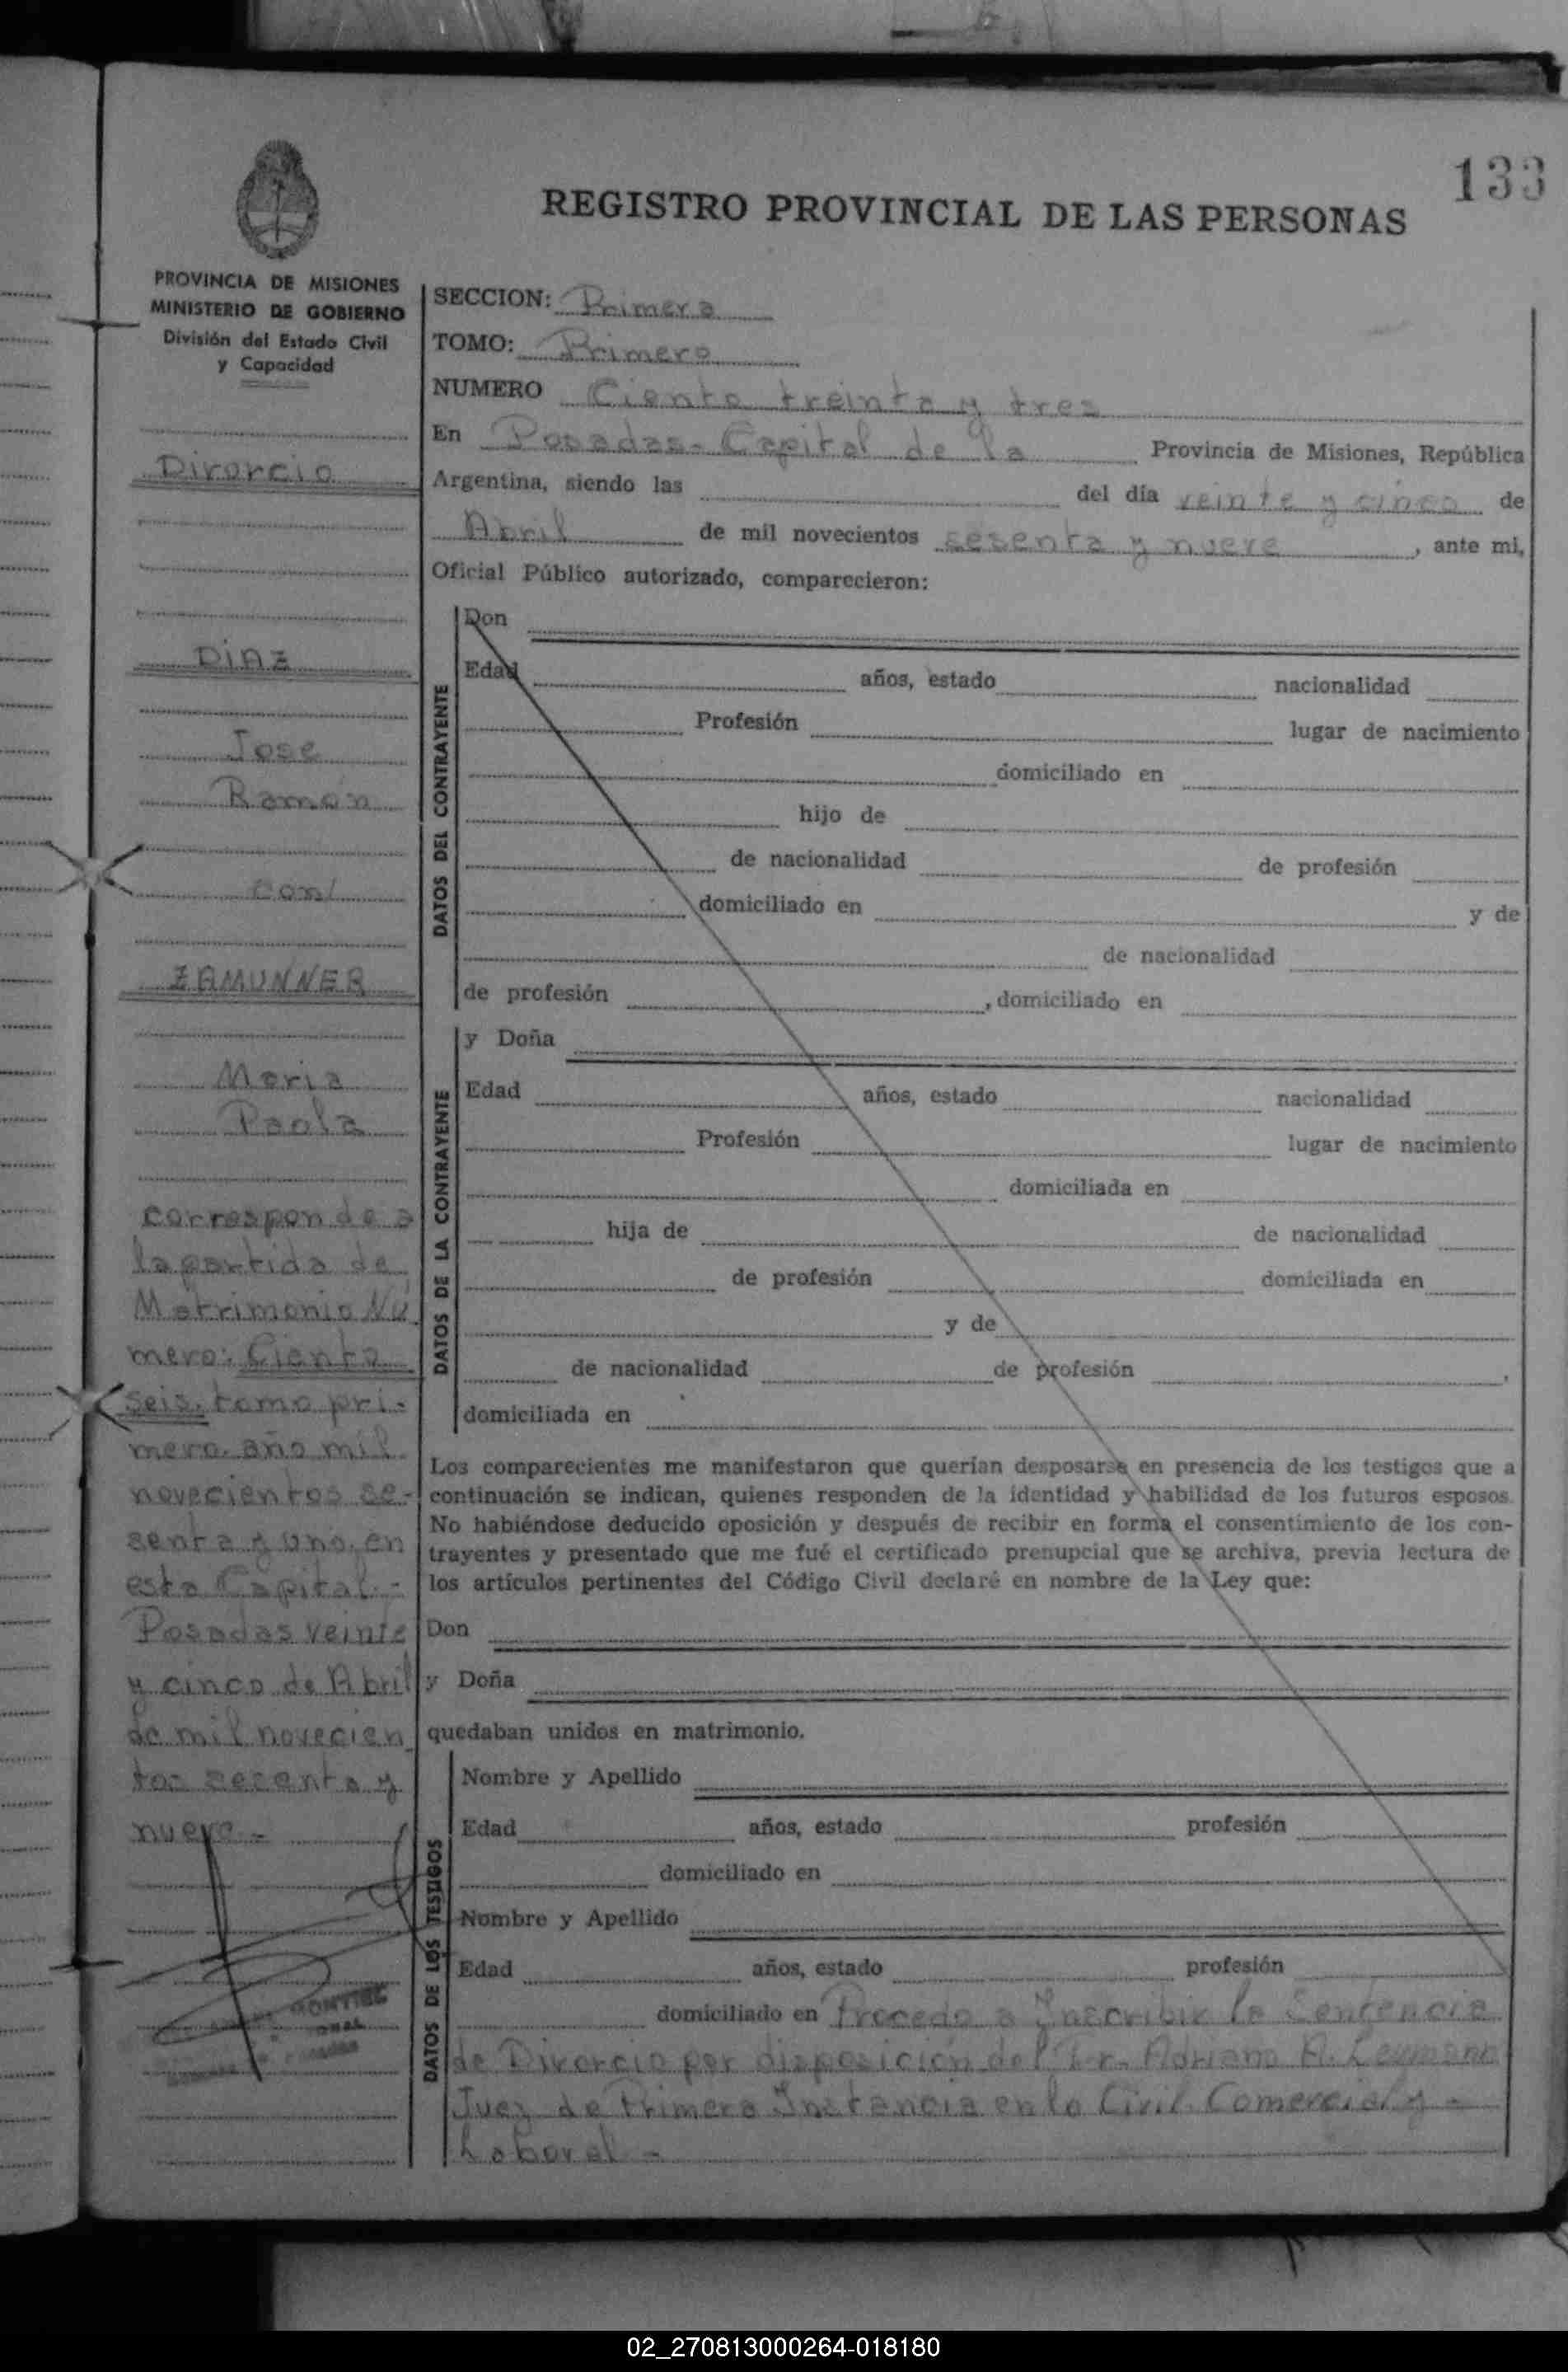 133
REGISTRO PROVINCIAL DE LAS PERSONAS
PROVINCIA DE MISIONES
MINISTERIO DE GOBIERNO
División del Estado Civil
y Capacidad
Divorcio
DIAZ
Jose
Ramón
con/
ZAMUNNER
Maria
Paola
corresponde a
la partida de
Matrimonio Nú
mero: Ciento
seis, tomo pri-
mero, año mil
novecientos se-
senta y uno, en
esta Capital.-
Posadas veinte
y cinco de Abril
de mil novecien
tos secenta y
nueve.-
SECCION: Primera
TOMO: Primero
NUMERO Ciento treinta y tres
En Posadas-Capital de la Provincia de Misiones, República
Argentina, siendo las del día veinte y cinco de
Abril de mil novecientos sesenta y nueve, ante mi,
Oficial Público autorizado, comparecieron:
DATOS DEL CONTRAYENTE
Don
Edad años, estado nacionalidad
Profesión lugar de nacimiento
domiciliado en
hijo de
de nacionalidad de profesión
domiciliado en y de
de nacionalidad
de profesión , domiciliado en
DATOS DE LA CONTRAYENTE
y Doña
Edad años, estado nacionalidad
Profesión lugar de nacimiento
domiciliada en
hija de de nacionalidad
de profesión domiciliada en
y de
de nacionalidad de profesión ,
domiciliada en
Los comparecientes me manifestaron que querían desposarse en presencia de los testigos que a
continuación se indican, quienes responden de la identidad y habilidad de los futuros esposos.
No habiéndose deducido oposición y después de recibir en forma el consentimiento de los con-
trayentes y presentado que me fué el certificado prenupcial que se archiva, previa lectura de
los artículos pertinentes del Código Civil declaré en nombre de la Ley que:
Don
y Doña
quedaban unidos en matrimonio.
DATOS DE LOS TESTIGOS
Nombre y Apellido
Edad años, estado profesión
domiciliado en
Nombre y Apellido
Edad años, estado profesión
domiciliado en Procedo a Inscribir la Sentencia
de Divorcio por disposición del Dr. Adriano A. Leumann
Juez de Primera Instancia en lo Civil. Comercial y -
Laboral -
02_270813000264-018180